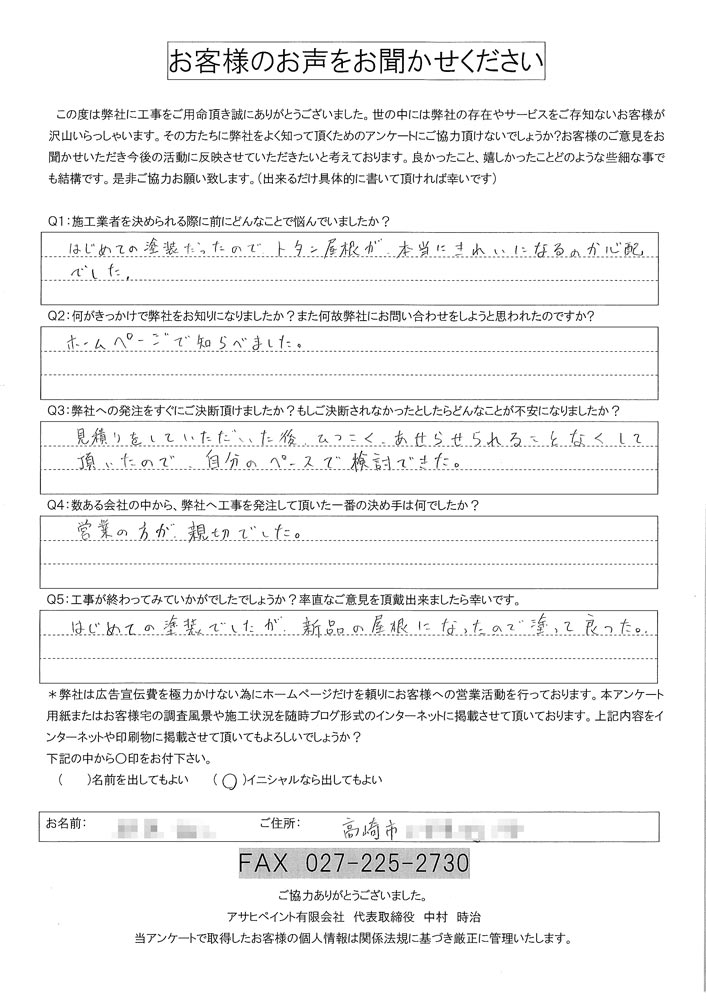 お客様のお声をお聞かせください
この度は弊社に工事をご用命頂き誠にありがとうございました。世の中には弊社の存在やサービスをご存知ないお客様が
沢山いらっしゃいます。その方たちに弊社をよく知って頂くためのアンケートにご協力頂けないでしょうか?お客様のご意見をお
聞かせいただき今後の活動に反映させていただきたいと考えております。良かったこと、嬉しかったことどのような些細な事で
も結構です。是非ご協力お願い致します。(出来るだけ具体的に書いて頂ければ幸いです)
Q1:施工業者を決められる際に前にどんなことで悩んでいましたか?
はじめての塗装だったので、トタン屋根が、本当にきれいになるのか心配
でした。
Q2:何がきっかけで弊社をお知りになりましたか?また何故弊社にお問い合わせをしようと思われたのですか?
ホームページで知らべました。
Q3:弊社への発注をすぐにご決断頂けましたか?もしご決断されなかったとしたらどんなことが不安になりましたか?
見積りをしていただいた後、ひつこく、あせらせられることなくして
頂いたので、自分のペースで検討できた。
Q4:数ある会社の中から、弊社へ工事を発注して頂いた一番の決め手は何でしたか?
営業の方が、親切でした。
Q5:工事が終わってみていかがでしたでしょうか?率直なご意見を頂戴出来ましたら幸いです。
はじめての塗装でしたが、新品の屋根になったので塗って良った。
*弊社は広告宣伝費を極力かけない為にホームページだけを頼りにお客様への営業活動を行っております。本アンケート
用紙またはお客様宅の調査風景や施工状況を随時ブログ形式のインターネットに掲載させて頂いております。上記内容をイ
ンターネットや印刷物に掲載させて頂いてもよろしいでしょうか?
下記の中から〇印をお付下さい。
( )名前を出してもよい (〇)イニシャルなら出してもよい
お名前: ご住所: 高崎市
FAX 027-225-2730
ご協力ありがとうございました。
アサヒペイント有限会社 代表取締役 中村 時治
当アンケートで取得したお客様の個人情報は関係法規に基づき厳正に管理いたします。